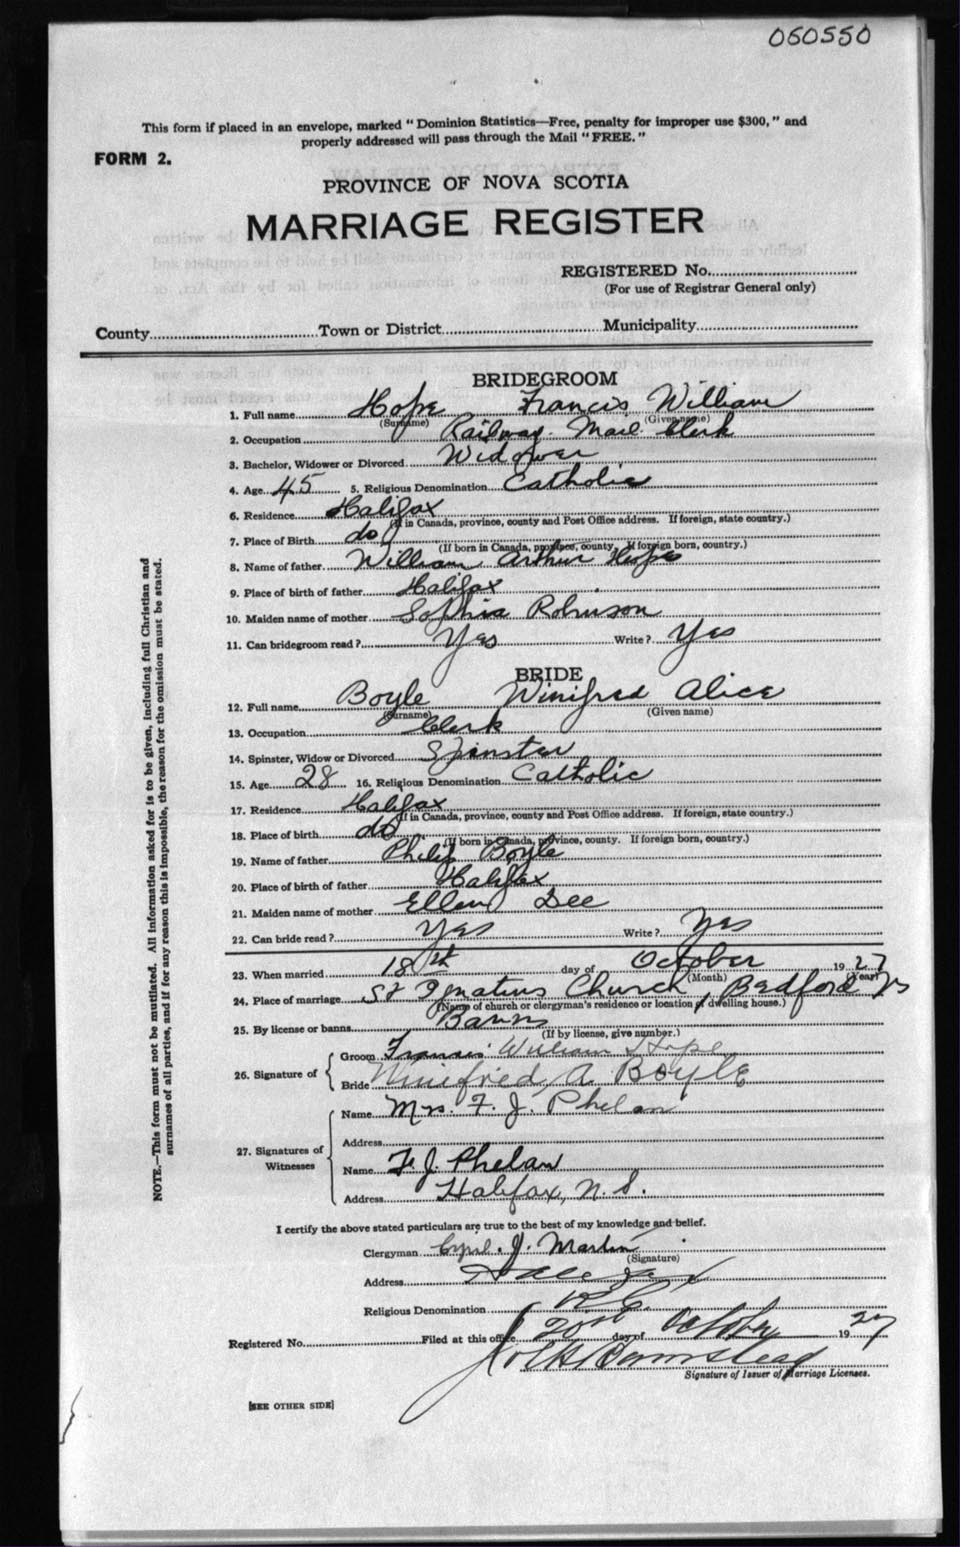 060550
This form if placed in an envelope, marked "Dominion Statistics—Free, penalty for improper use $300," and
properly addressed will pass through the Mail "FREE."
FORM 2.
PROVINCE OF NOVA SCOTIA
MARRIAGE REGISTER
REGISTERED No.
(For use of Registrar General only)
County Town or District Municipality
BRIDEGROOM
1. Full name Hope Francis William
(Surname) (Given name)
2. Occupation Railway Mail Clerk
3. Bachelor, Widower or Divorced Widower
4. Age 45 5. Religious Denomination Catholic
6. Residence Halifax
(If in Canada, province, county and Post Office address. If foreign, state country.)
7. Place of Birth do
(If born in Canada, province, county. If foreign born, country.)
8. Name of father William Arthur Hope
9. Place of birth of father Halifax
10. Maiden name of mother Sophia Robinson
11. Can bridegroom read? Yes Write? Yes
BRIDE
12. Full name Boyle Winifred Alice
(Surname) (Given name)
13. Occupation Clerk
14. Spinster, Widow or Divorced Spinster
15. Age 28 16. Religious Denomination Catholic
17. Residence Halifax
(If in Canada, province, county and Post Office address. If foreign, state country.)
18. Place of birth do
(If born in Canada, province, county. If foreign born, country.)
19. Name of father Philip Boyle
20. Place of birth of father Halifax
21. Maiden name of mother Ellen Dee
22. Can bride read? Yes Write? Yes
23. When married 18th day of October 1927
(Month) (Year)
24. Place of marriage St Ignatius Church, Bedford NS
(Name of church or clergyman's residence or location of dwelling house.)
25. By license or banns Banns
(If by license, give number.)
26. Signature of
Groom Francis William Hope
Bride Winifred A Boyle
27. Signatures of Witnesses
Name Mrs. F. J. Phelan
Address
Name F. J. Phelan
Address Halifax, N. S.
I certify the above stated particulars are true to the best of my knowledge and belief.
Clergyman Cyril. J. Martin
(Signature)
Address Halifax
Religious Denomination R C.
Registered No. Filed at this office 20 day of October 1927
Signature of Issuer of Marriage Licenses.
[SEE OTHER SIDE]
NOTE.—This form must not be mutilated. All information asked for is to be given, including full Christian and
surnames of all parties, and if for any reason this is impossible, the reason for the omission must be stated.